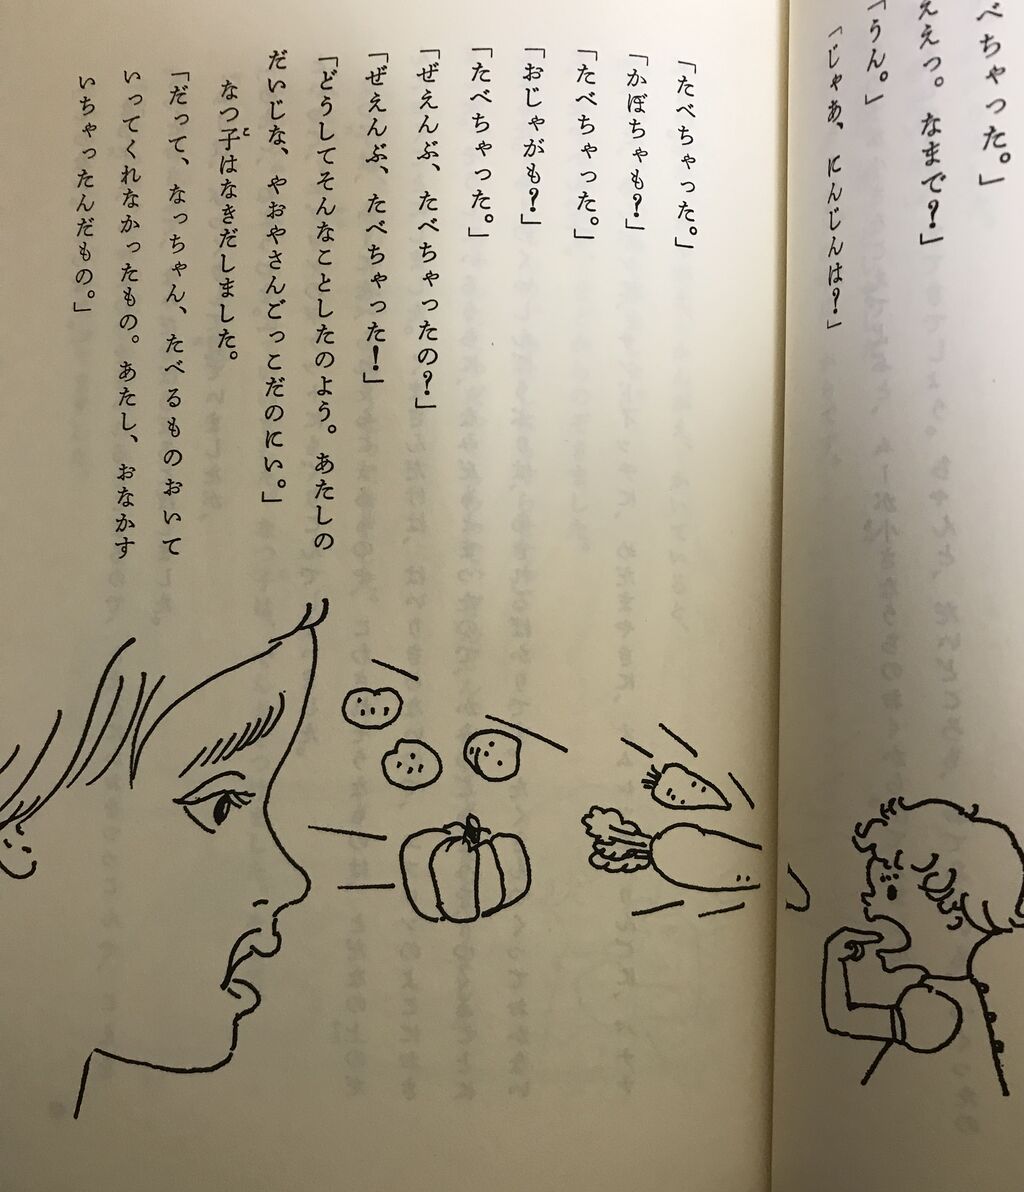 べちゃった。」
ええっ。なまで?」
「うん。」
「じゃあ、にんじんは?」
「たべちゃった。」
「かぼちゃも?」
「たべちゃった。」
「おじゃがも?」
「たべちゃった。」
「ぜえんぶ、たべちゃったの?」
「ぜえんぶ、たべちゃった!」
「どうしてそんなことしたのよう。あたしの
だいじな、やおやさんごっこだのにい。」
なつ子はなきだしました。
「だって、なっちゃん、たべるものおいて
いってくれなかったもの。あたし、おなかす
いちゃったんだもの。」